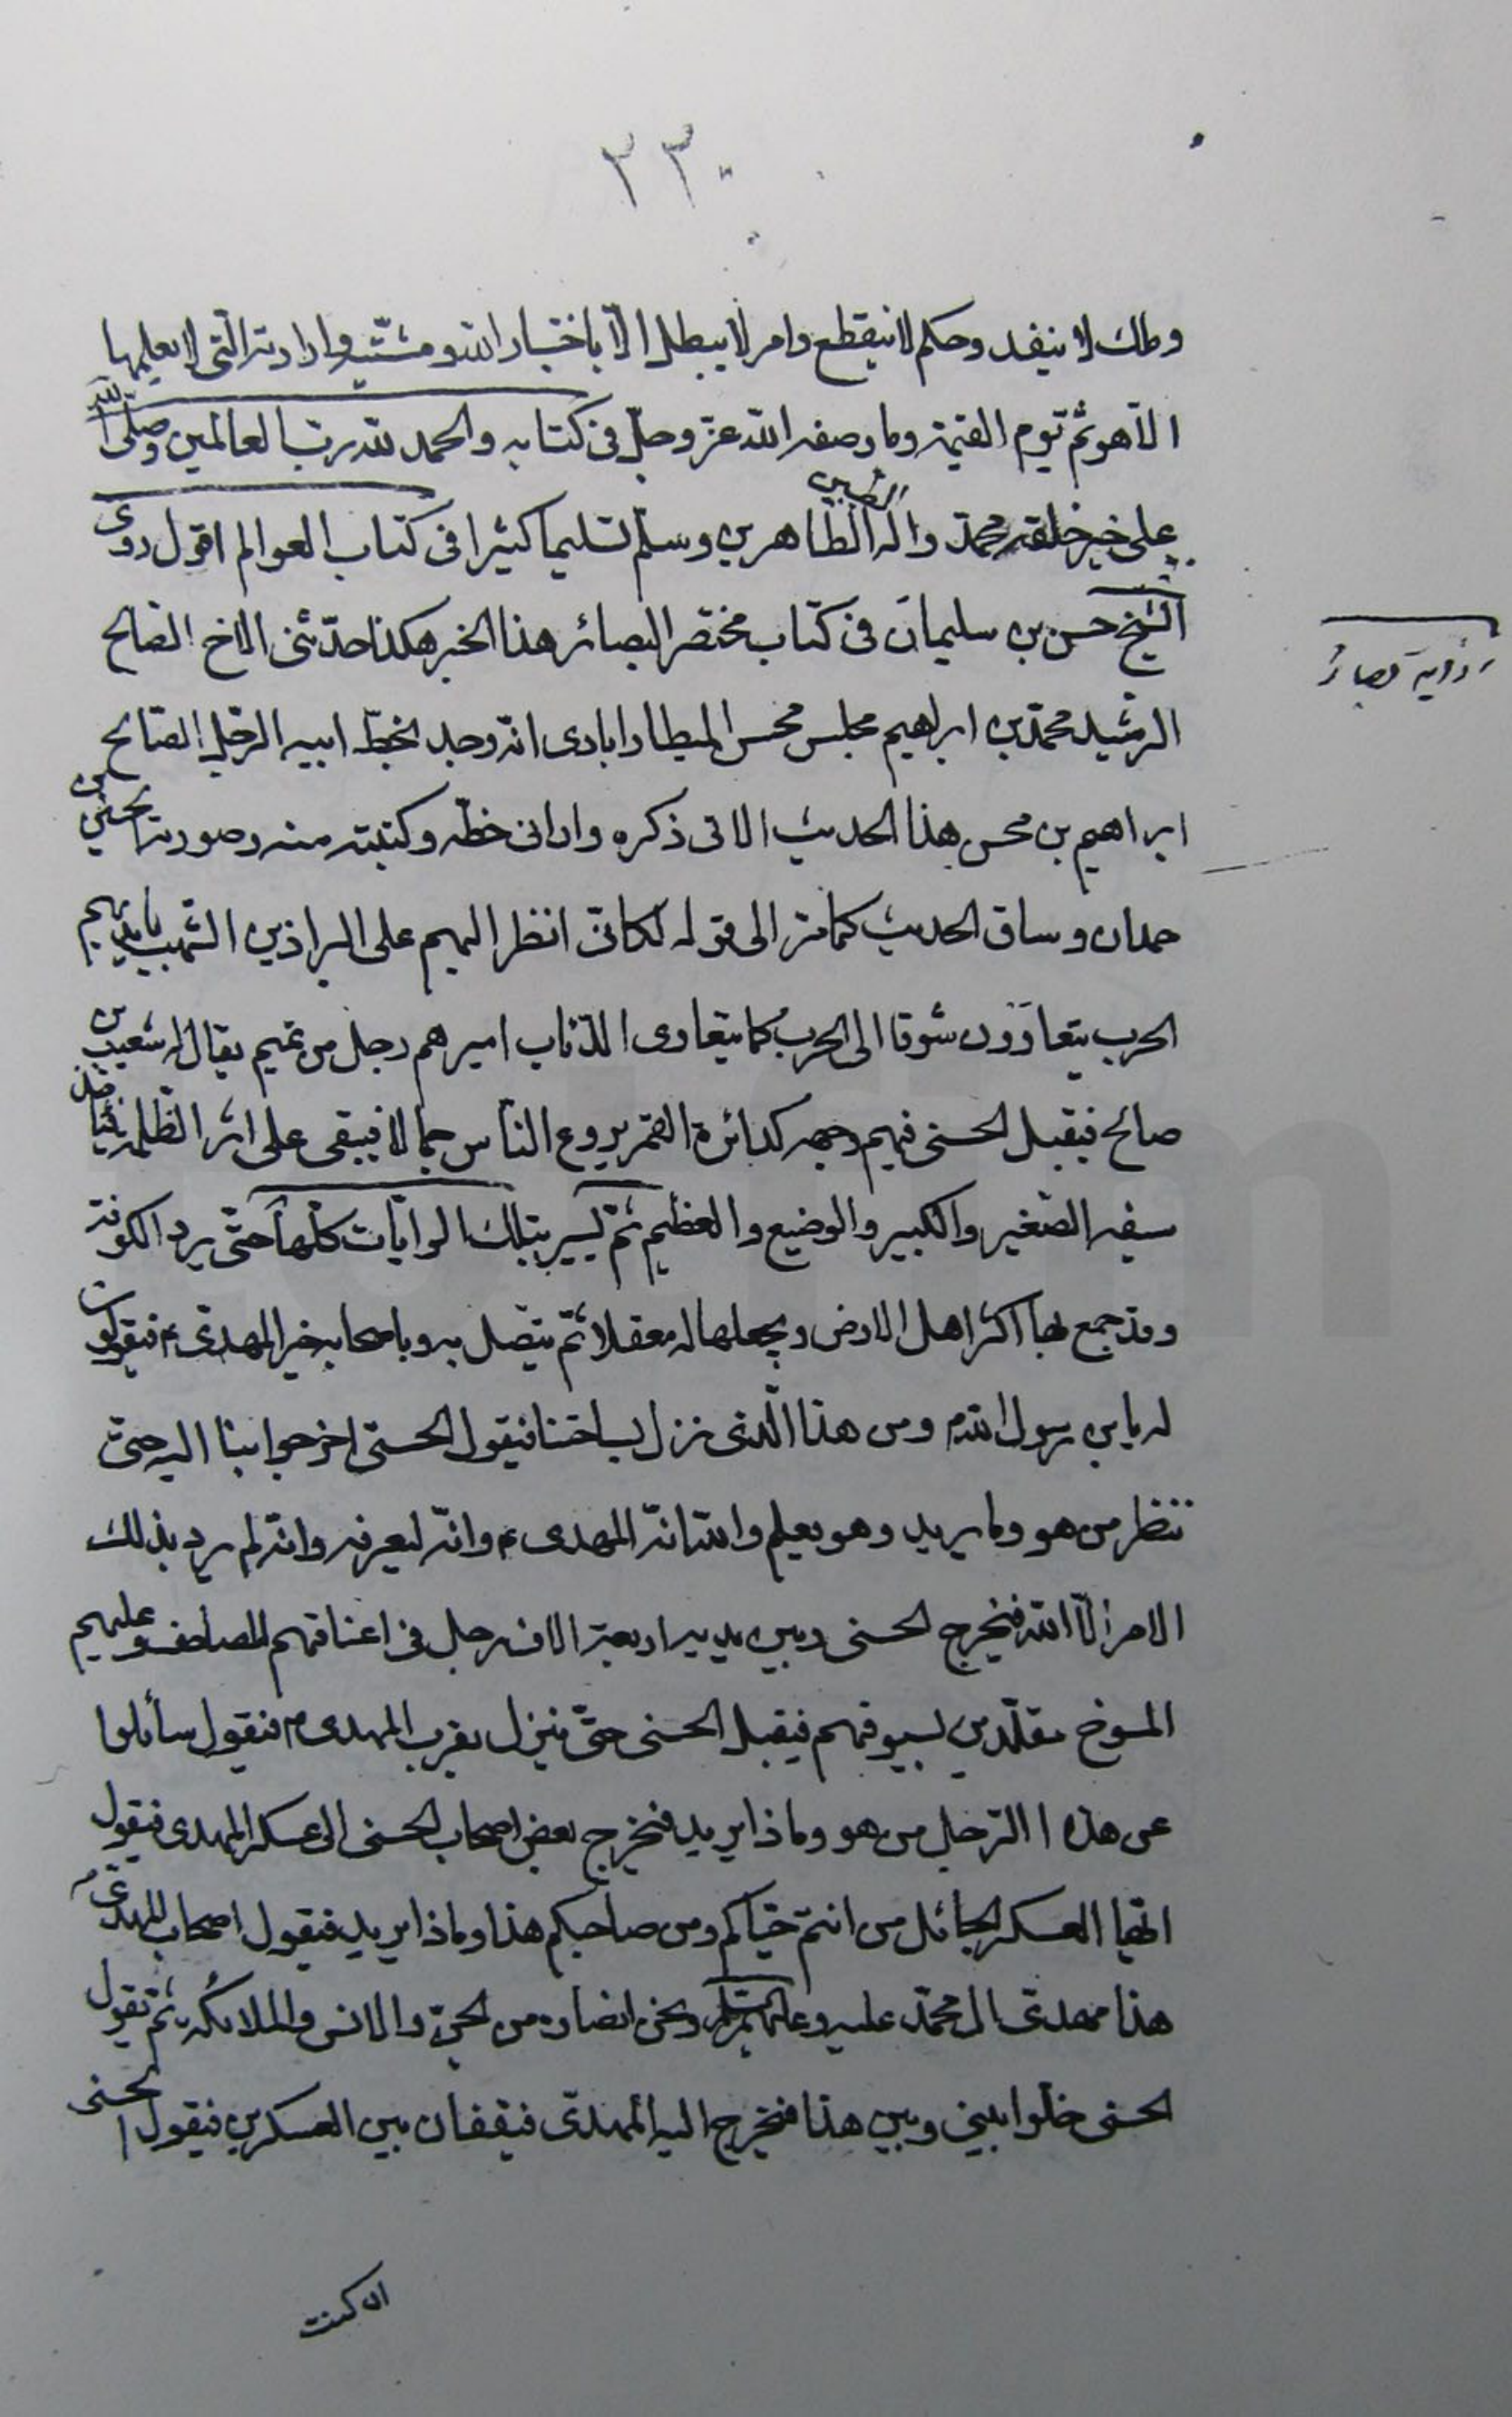 ٣٣٠
وملك لا ينفد وحكم لا ينقطع وامر لا يبطل الا باختيار الله ومشيته وارادته التي لا يعلمها
الا هو ثم يوم القيمة وما وصفه الله عز وجل في كتابه والحمد لله رب العالمين وصلى الله
على خير خلقه محمد واله الطيبين الطاهرين وسلم تسليما كثيرا في كتاب العوالم اقول روى
الشيخ حسن بن سليمان في كتاب مختصر البصائر هذا الخبر هكذا حدثني الاخ الصالح
الرشيد محمد بن ابراهيم مجلس محسن المطارابادى انه وجد بخط ابيه الرجل الصالح
ابراهيم بن محسن هذا الحديث الاتى ذكره وارانى خطه وكتبته منه وصورته الحسين بن
حمدان وساق الحديث كما مر الى قوله لكانى انظر اليهم على البراذين الشهب بايديهم
الحرب يتعاوون شوقا الى الحرب كما يتعاوى الذئاب اميرهم رجل من تميم يقال له شعيب بن
صالح فيقبل الحسنى فيهم وجهه كدائرة القمر يروع الناس جمالا فيبقى على اثر الظلمة فياخذ
سيفه الصغير والكبير والوضيع والعظيم ثم يسير بتلك الرايات كلها حتى يرد الكوفة
وقد جمع بها اكثر اهل الارض ويجعلها له معقلا ثم يتصل به وباصحابه خبر المهدى ع فيقولون
له يابن رسول الله ص ومن هذا الذى نزل بساحتنا فيقول الحسنى اخرجوا بنا اليه حتى
ننظر من هو وما يريد وهو يعلم والله انه المهدى ع وانه ليعرفه وانه لم يرد بذلك
الامر الا الله فيخرج الحسنى وبين يديه اربعة الاف رجل في اعناقهم المصاحف وعليهم
المسوخ مقلدين بسيوفهم فيقبل الحسنى حتى ينزل بقرب المهدى ع فيقول سائلوا
عن هذا الرجل من هو وماذا يريد فيخرج بعض اصحاب الحسنى الى عسكر المهدى فيقول
ايها العسكر الجائل من انتم حياكم ومن صاحبكم هذا وماذا يريد فيقول اصحاب المهدى ع
هذا مهدى ال محمد عليه وعليهم السلم ونحن انصاره من الجن والانس والملائكة ثم يقول
الحسنى خلوا بينى وبين هذا فيخرج اليه المهدى فيقفان بين العسكرين فيقول الحسنى
ان كنت